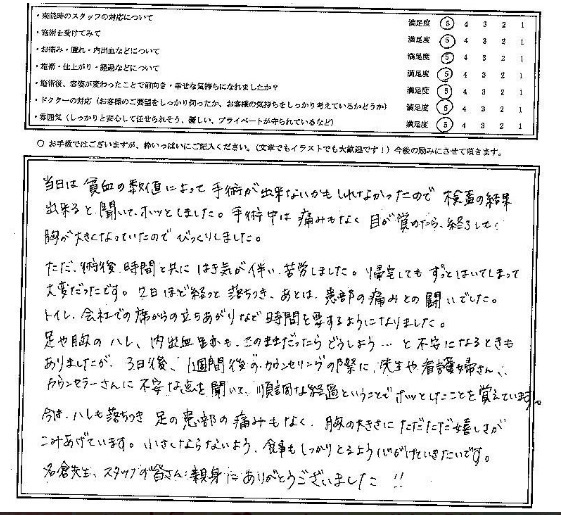 ・来院時のスタッフの対応について 満足度 5 4 3 2 1
・施術を受けてみて 満足度 5 4 3 2 1
・お痛み・腫れ・内出血などについて 満足度 5 4 3 2 1
・施術・仕上がり・経過などについて 満足度 5 4 3 2 1
・施術後、容姿が変わったことで前向き・幸せな気持ちになれましたか? 満足度 5 4 3 2 1
・ドクターの対応(お客様のご要望をしっかり伺ったか、お客様の気持ちをしっかり考えているかどうか) 満足度 5 4 3 2 1
・雰囲気(しっかりと安心して任せられそう、優しい、プライベートが守られているなど) 満足度 5 4 3 2 1
○ お手数ではございますが、枠いっぱいにご記入ください。(文章でもイラストでも大歓迎です!)今後の励みにさせて頂きます。
当日は貧血の数値によって手術が出来ないかもしれなかったので検査の結果
出来ると聞いて、ホッとしました。手術中は痛みもなく目が覚めたら、終了して
胸が大きくなっていたのでびっくりしました。
ただ、術後、時間と共にはき気が伴い、苦労しました。帰宅してもずっとはいてしまって
大変だったです。2日ほど経つと落ちつき、あとは、患部の痛みとの闘いでした。
トイレ、会社での席からの立ちあがりなど時間を要するようになりました。
足や胸のハレ、内出血等も、このままだったらどうしよう…と不安になるときも
ありましたが、3日後、1週間後のカウンセリングの際に、先生や看護婦さん、
カウンセラーさんに不安な点を聞いて、順調な経過ということでホッとしたことを覚えています。
今は、ハレも落ちつき足の患部の痛みもなく、胸の大きさにただただ嬉しさが
こみあげています。小さくならないよう、食事もしっかりとるよう心がけていきたいです。
名倉先生、スタッフの皆さん、親身にありがとうございました!!